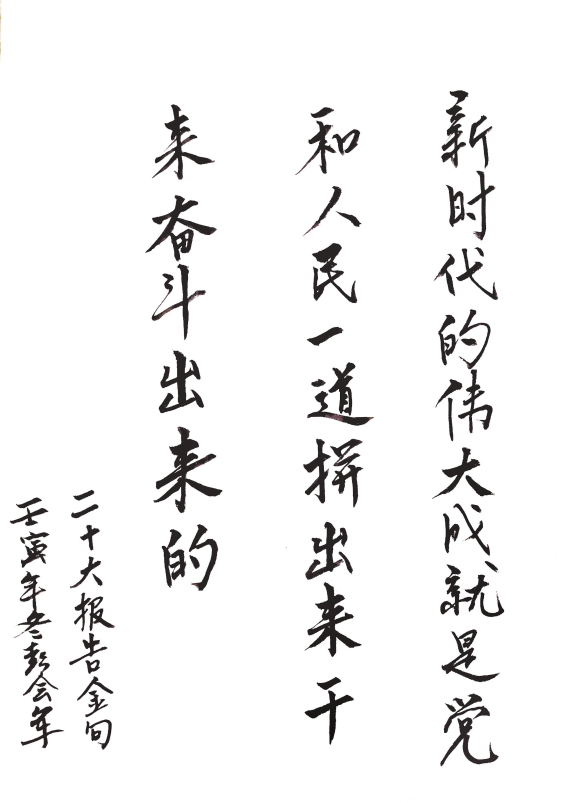 新时代的伟大成就是党
和人民一道拼出来干
来奋斗出来的
二十大报告金句
壬寅年冬彭会年